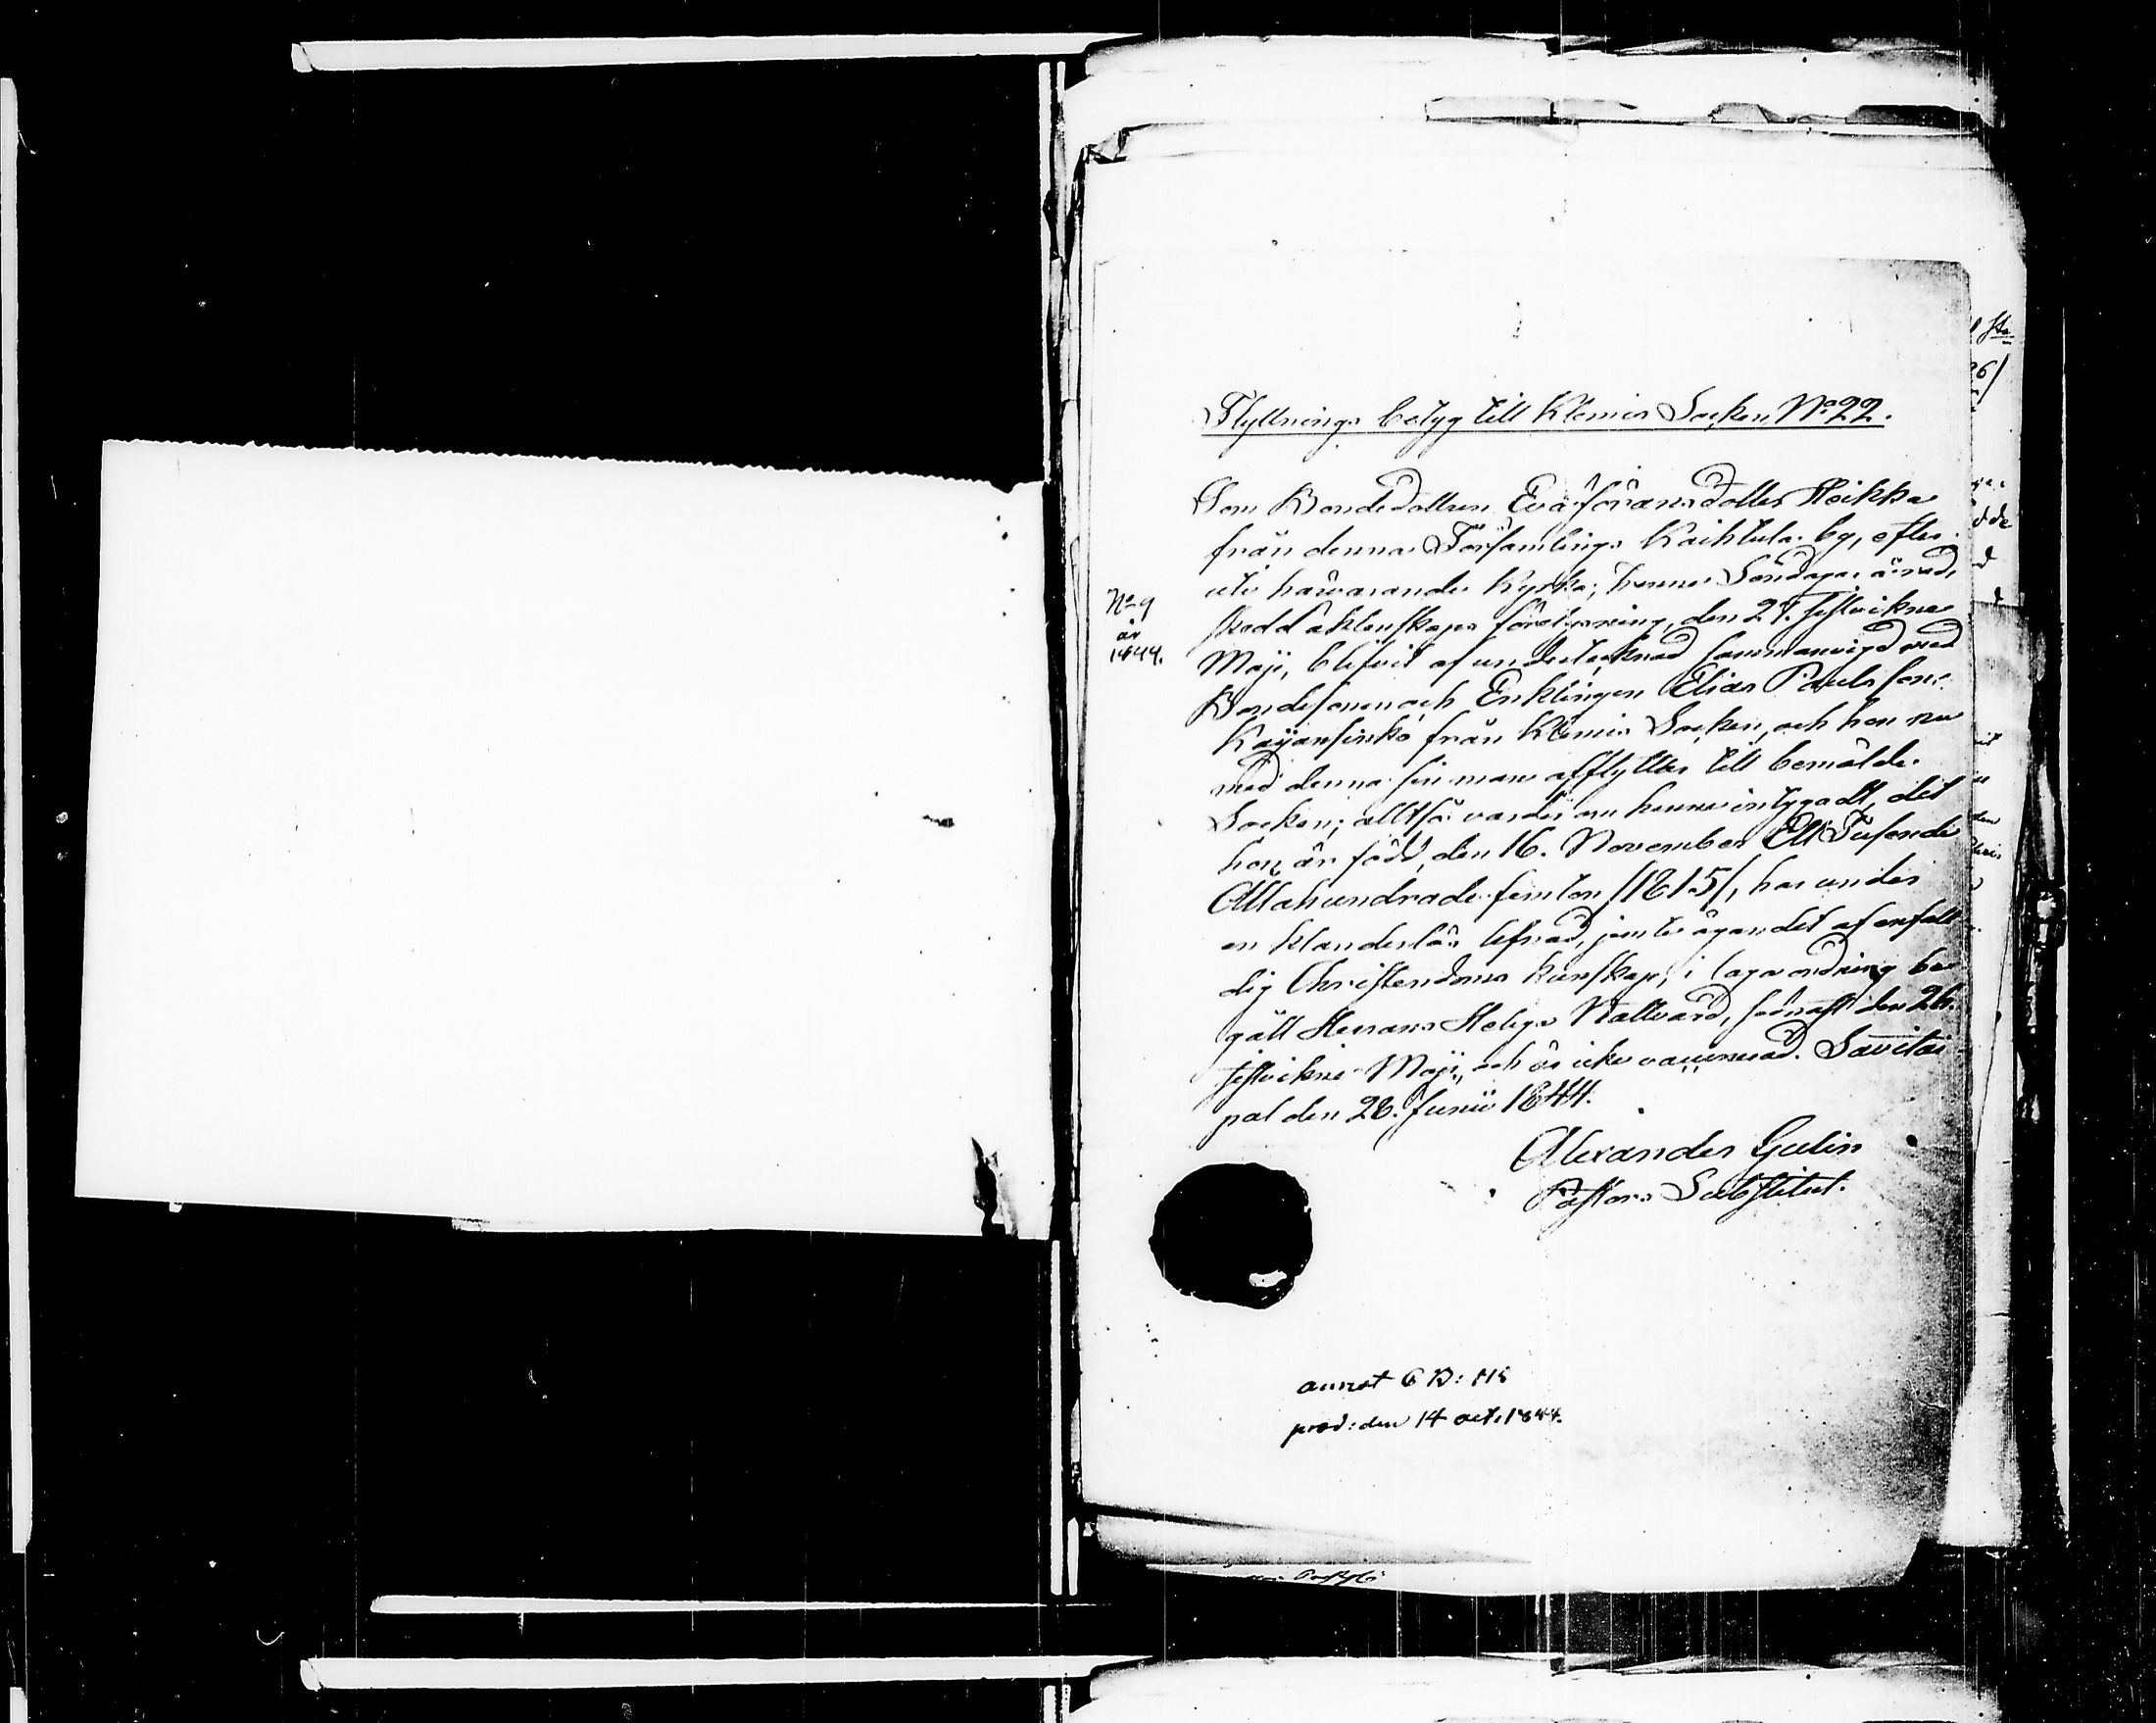 Flyttnings betyg till Klemis Socken, No 22.
Som Bondedottren Eva Göransdotter Heikka
från denna Församlings Kaihtula by, efter
uti härvarande Kyrka, trenne Söndagar å rad,
skedd äktenskaps förelysning, den 27. sistvikne
Maji, blifvit af undertecknad sammanvigd med
Bondesonen och Enklingen Elias Paulsson
Kaijansinko från Klemis Socken, och hon nu
med denna sin man afflyttar till bemälde
Socken; alltså varder om henne intygadt, det
hon är född, den 16. November Ett Tusende
Åttahundrade femton /1815/, har under
en klanderlös lefnad, jemte ägandet af enfall-
dig Christendoms kunskap, i laga ordning be-
gått Herrans Heliga Nattvard, sednast den 26.
sistvikne Maji, och är icke vaccinerad. Savitai-
pal den 28. Junii 1844.
Alexander Gulin
Pastors Substitut.
No 9
år
1844.
annot C B: 115
prod: den 14 oct. 1844.